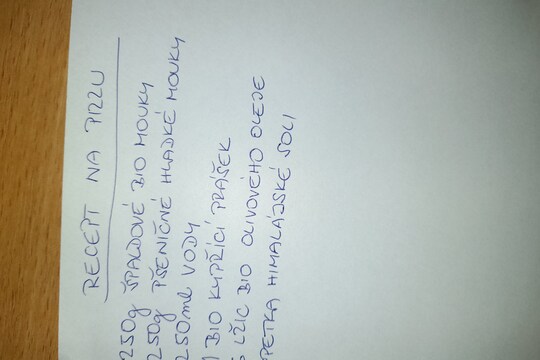 RECEPT NA PIZZU
250g ŠPALDOVÉ BIO MOUKY
250g PŠENIČNÉ HLADKÉ MOUKY
250ml VODY
1 BIO KYPŘÍCÍ PRÁŠEK
LŽIC BIO OLIVOVÉHO OLEJE
ŠPETKA HIMALÁJSKÉ SOLI